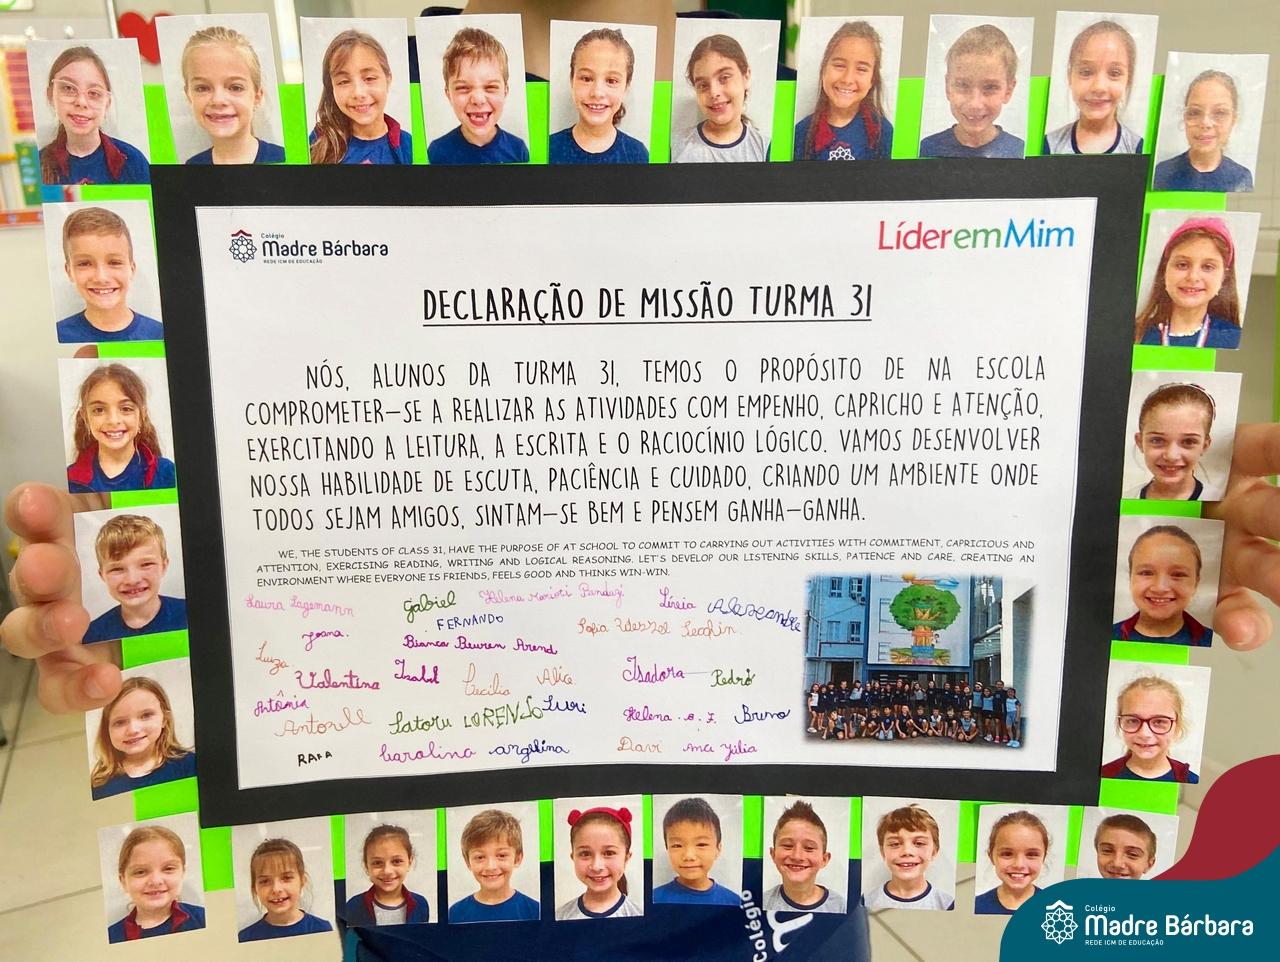 Colégio
Madre Bárbara
REDE ICM DE EDUCAÇÃO
LíderemMim
DECLARAÇÃO DE MISSÃO TURMA 31
NÓS, ALUNOS DA TURMA 31, TEMOS O PROPÓSITO DE NA ESCOLA
COMPROMETER-SE A REALIZAR AS ATIVIDADES COM EMPENHO, CAPRICHO E ATENÇÃO,
EXERCITANDO A LEITURA, A ESCRITA E O RACIOCÍNIO LÓGICO. VAMOS DESENVOLVER
NOSSA HABILIDADE DE ESCUTA, PACIÊNCIA E CUIDADO, CRIANDO UM AMBIENTE ONDE
TODOS SEJAM AMIGOS, SINTAM-SE BEM E PENSEM GANHA-GANHA.
WE, THE STUDENTS OF CLASS 31, HAVE THE PURPOSE OF AT SCHOOL TO COMMIT TO CARRYING OUT ACTIVITIES WITH COMMITMENT, CAPRICIOUS AND
ATTENTION, EXERCISING READING, WRITING AND LOGICAL REASONING. LET'S DEVELOP OUR LISTENING SKILLS, PATIENCE AND CARE, CREATING AN
ENVIRONMENT WHERE EVERYONE IS FRIENDS, FEELS GOOD AND THINKS WIN-WIN.
Laura Lagemann Gabriel Helena Lívia Alessandre
Joana. FERNANDO Sofia
Bianca Beuren Arend
Luiza. Valentina Isabel Cecília Alice Isadora Pedro
Antônia Satoru LORENZO Iuri Helena Bruno
RAFA Carolina Angelina Davi Ana Júlia
Colégio
Colégio
Madre Bárbara
REDE ICM DE EDUCAÇÃO